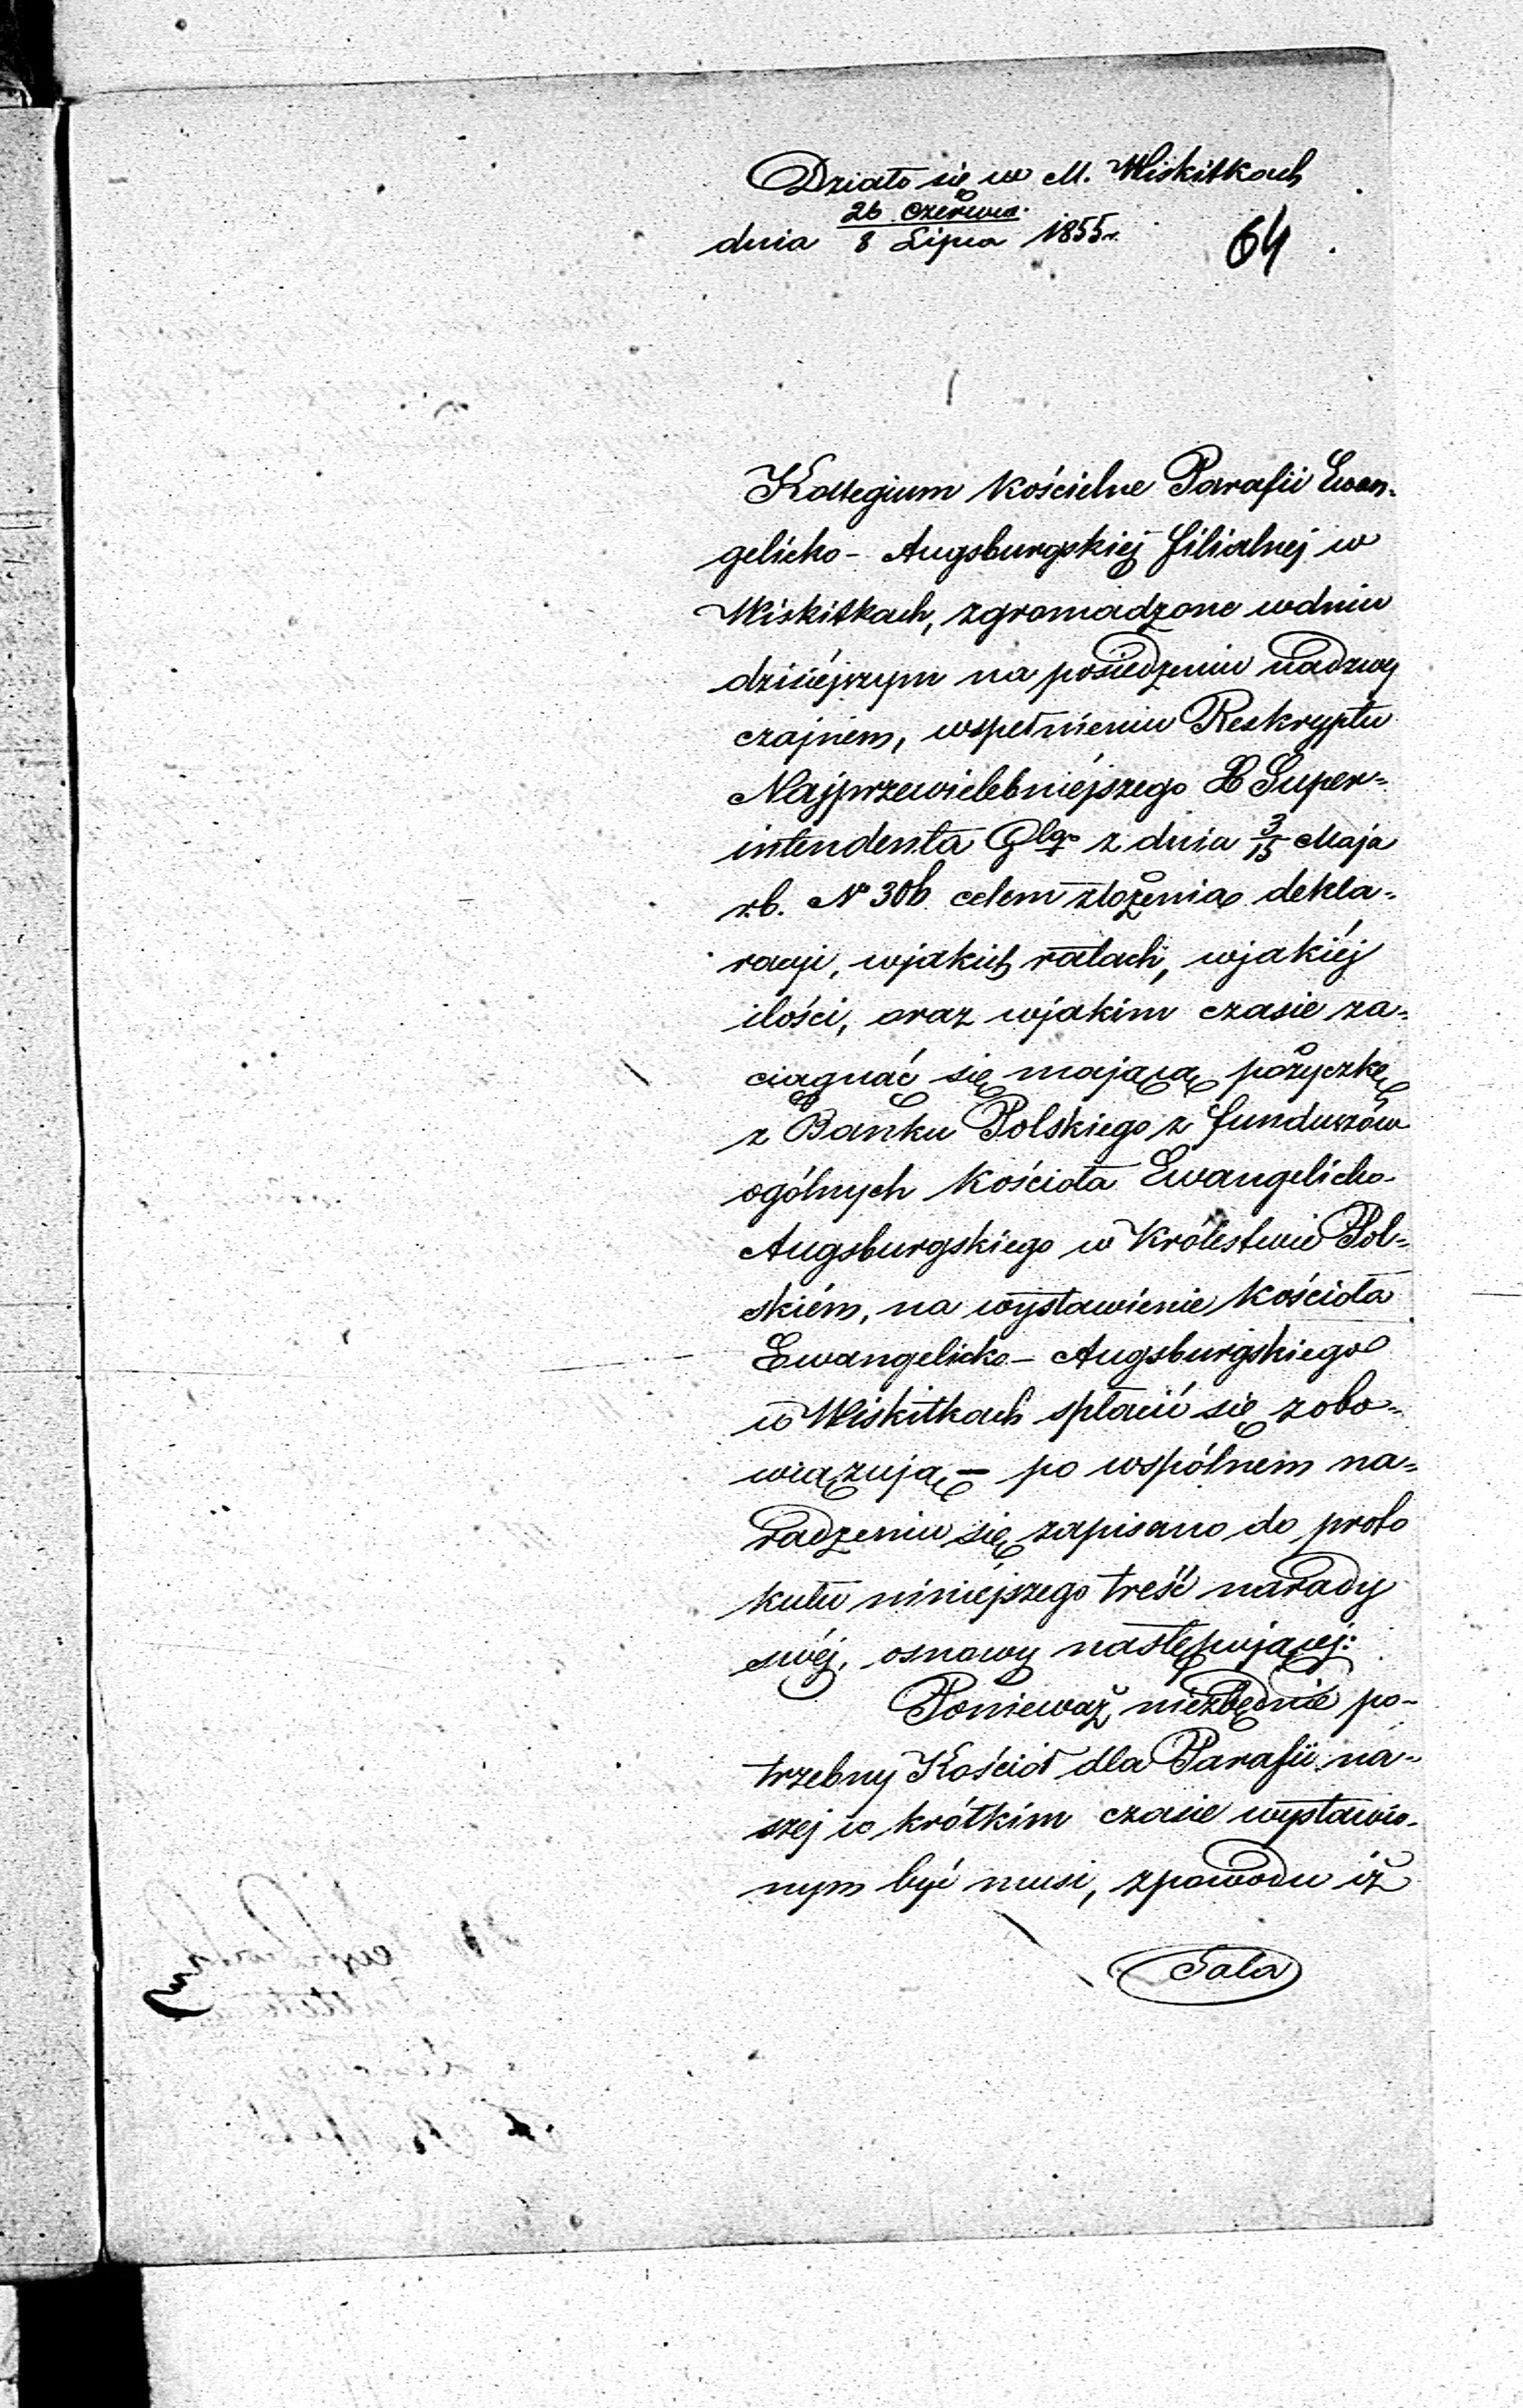 Działo się w M. Wiskitkach
26 Czerwca
dnia 8 Lipca 1855 r.
64
Kollegium kościelne Parafii Ewan-
gelicko-Augsburgskiej filialnej w
Wiskitkach, zgromadzone wdniu
dzisiéjszym na posiedzeniu nadzwy
czajnem, wspełnieniu Reskryptu
Najprzewielebniéjszego X Super=
intendenta Glgo z dnia 3/15 Maja
r.b. No 306 celem złożenia dekla=
racyi, wjakich ratach, wjakiéj
ilości, oraz wjakim czasie za=
ciągnąć się mającą pożyczkę
z Banku Polskiego z funduszów
ogólnych Kościoła Ewangelicko-
Augsburgskiego w Królestwie Pol=
skiém, na wystawienie Kościoła
Ewangelicko-Augsburgskiego
w Wiskitkach spłacić się zobo=
wiązują – po wspólnem na=
radzeniu się zapisano do proto
kułu niniéjszego treść narady
swéj, osnowy następującej:
Ponieważ niezbędnie po-
trzebny Kościół dla Parafii na=
szej w krótkim czasie wystawio-
nym być musi, zpowodu iż
Sala